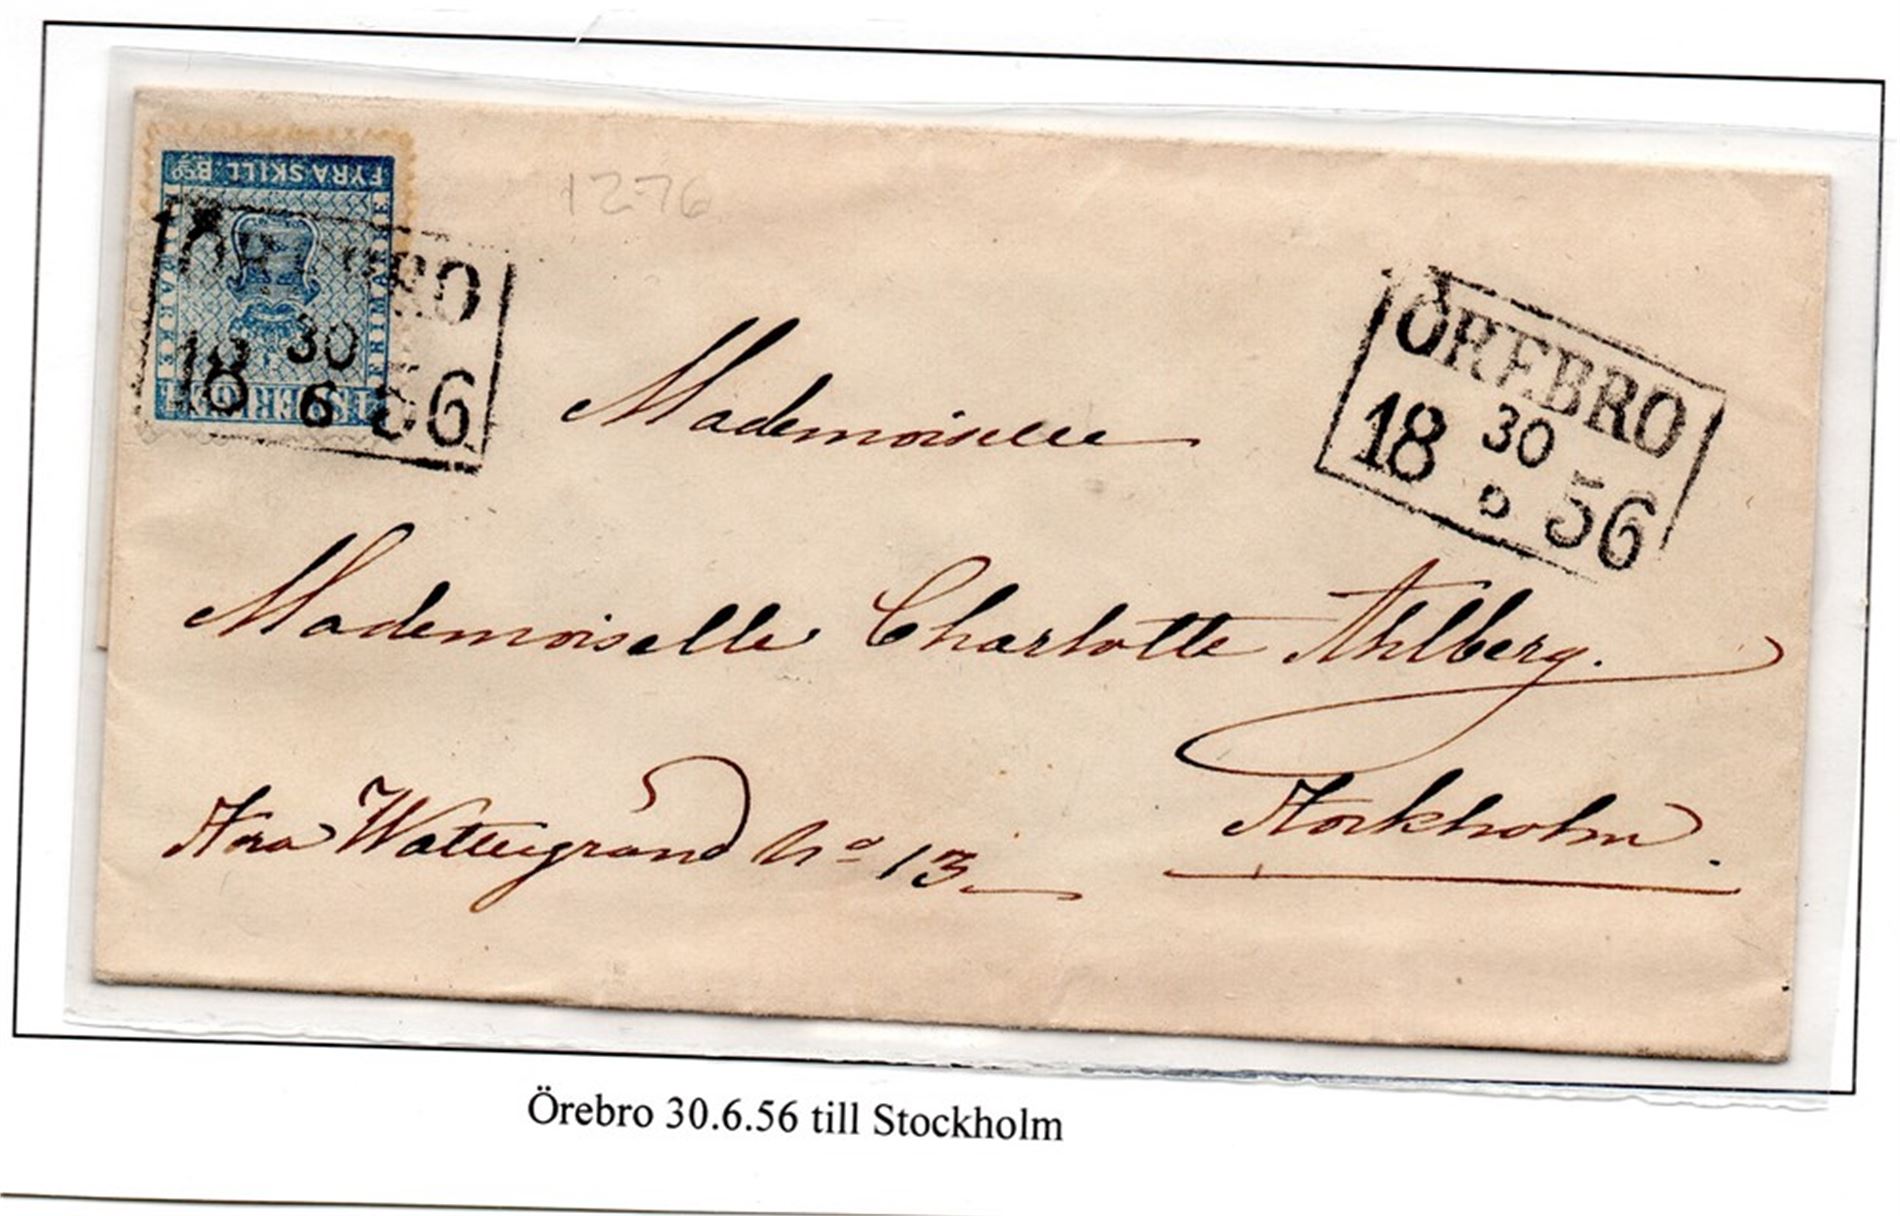 FYRA SKILL. Bco
SVERIGE
FRIMÄRKE
ÖREBRO
30
18 6 56
1276
ÖREBRO
30
18 56
Mademoiselle
Mademoiselle Charlotte Ahlberg.
Stora Wattugränd No 13
Stockholm.
Örebro 30.6.56 till Stockholm